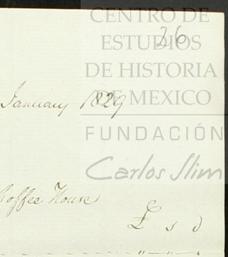 CENTRO DE
ESTUDIOS
36
DE HISTORIA
DE MEXICO
January 1829
FUNDACIÓN
Carlos Slim
Coffee House
£ s d